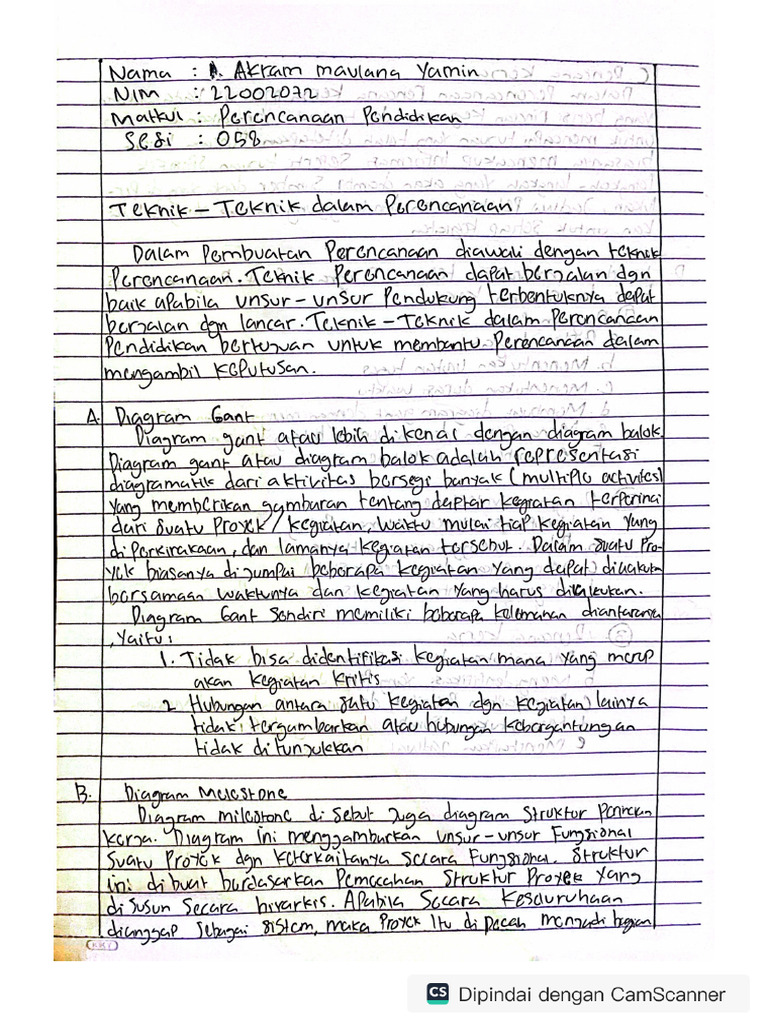 Nama : A. Akram maulana Yamin
NIM : 22002072
Matkul : Perencanaan Pendidikan
Sesi : 058
Teknik - Teknik dalam Perencanaan
Dalam Pembuatan Perencanaan diawali dengan teknik
Perencanaan. Teknik Perencanaan dapat berjalan dgn
baik apabila unsur-unsur Pendukung terbentuknya dapat
berjalan dgn lancar. Teknik-Teknik dalam Perencanaan
Pendidikan bertujuan untuk membantu Perencanaan dalam
mengambil Keputusan.
A. Diagram Gant
Diagram gant atau lebih dikenal dengan diagram balok.
Diagram gant atau diagram balok adalah representasi
diagramatik dari aktivitas bersegi banyak (multiple activites)
yang memberikan gambaran tentang daftar kegiatan terperinci
dari suatu Proyek/kegiatan, waktu mulai tiap kegiatan yang
diperkirakaan, dan lamanya kegiatan tersebut. Dalam suatu Pro-
yek biasanya dijumpai beberapa kegiatan yang dapat dilakukan
bersamaan waktunya dan kegiatan yang harus dilakukan.
Diagram Gant Sendiri memiliki beberapa kelemahan diantaranya
, yaitu :
1. Tidak bisa didentifikasi kegiatan mana yang merup
akan kegiatan kritis
2. Hubungan antara satu kegiatan dgn kegiatan lainya
tidak tergambarkan atau hubungan kebergantungan
tidak ditunjukkan
B. Diagram Milestone
Diagram milestone di sebut Juga diagram Struktur
kerja. Diagram ini menggambarkan unsur-unsur Fungsional
Suatu Proyek dgn keterkaitanya secara Fungsional. Struktur
ini di buat berdasarkan Pemecahan Struktur Proyek yang
di susun Secara hirarkis. Apabila Secara Keseluruhaan
dianggap Sebagai Sistem, maka Proyek itu di Pecah menjadi bagian
KKY
CS Dipindai dengan CamScanner